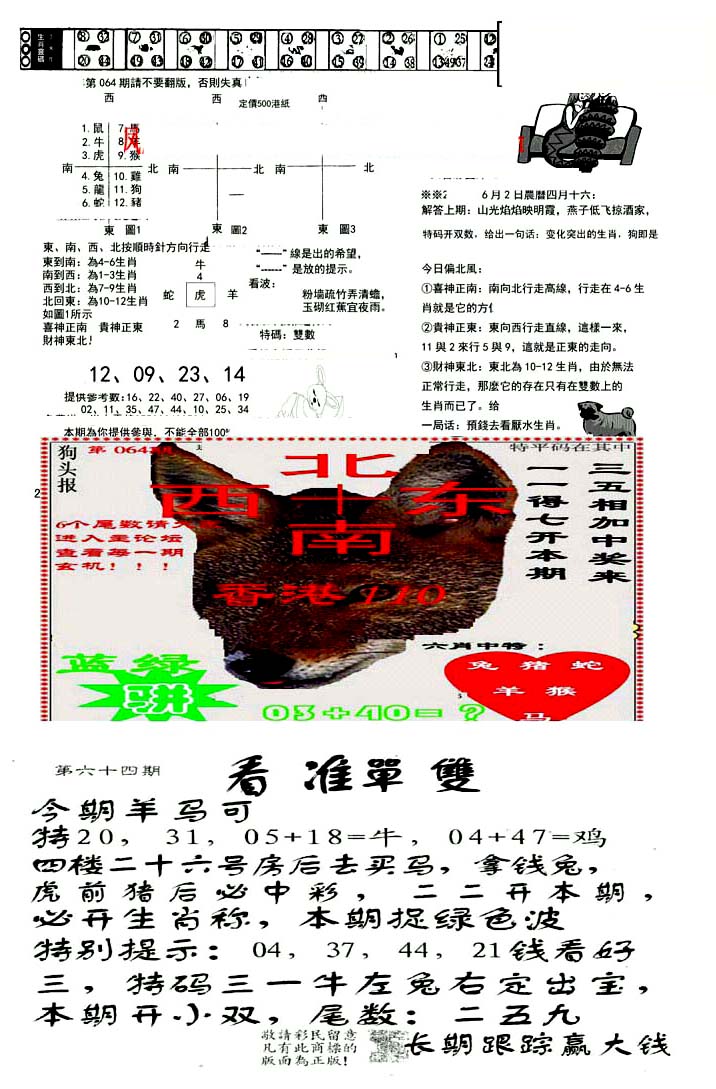 生肖靈碼
8 32 7 31 6 30 5 29 4 28 3 27 2 26 1 25 12
20 44 19 43 18 42 17 41 16 40 15 39 14 38 13 49 37 24
第 064 期請不要翻版，否則失真
西 西 西
定價500港紙
1. 鼠 7. 馬
2. 牛 8.
3. 虎 9. 猴
南 北 南 北 南 北
4. 兔 10. 雞
5. 龍 11. 狗
6. 蛇 12. 豬
東 圖1 東 圖2 東 圖3
東、南、西、北按順時針方向行走
東到南：為4-6生肖
南到西：為1-3生肖
西到北：為7-9生肖
北回東：為10-12生肖
如圖1所示
喜神正南 貴神正東
財神東北！
牛
4
蛇 虎 羊
2 馬 8
“——” 線是出的希望，
“------” 是放的提示。
看波：
粉墙疏竹弄清蟾，
玉砌红蕉宜夜雨。
特碼：雙數
12、09、23、14
提供參考數：16、22、40、27、06、19
02、11、35、47、44、10、25、34
本期為你提供參與，不能全部100%
※※2 6 月 2 日農曆四月十六：
解答上期：山光焰焰映明霞，燕子低飞掠酒家，
特码开双数，给出一句话：变化突出的生肖，狗即是
今日偏北風：
①喜神正南：南向北行走高線，行走在 4-6 生
肖就是它的方位
②貴神正東：東向西行走直線，這樣一來，
11 與 2 來行 5 與 9，這就是正東的走向。
③財神東北：東北為 10-12 生肖，由於無法
正常行走，那麼它的存在只有在雙數上的
生肖而已了。给
一局话：預錢去看厭水生肖。
狗头报
第 064期
北
西 十 东
南
香港 110
6个尾数请
进入主论坛
查看每一期
玄机！！！
特平码在其中
三五相加中奖来
一一得七开本期
六肖中特：
兔 猪 蛇
羊 猴
马
蓝 绿
骈
03+40=？
第六十四期
看准單雙
今期羊马可
特20， 31， 05+18=牛， 04+47=鸡
四楼二十六号房后去买马，拿钱兔，
虎前猪后必中彩，二二开本期，
必开生肖称，本期捉绿色波
特别提示： 04， 37， 44， 21钱看好
三，特码三一牛左兔右定出宝，
本期开小双，尾数：二五九
敬請彩民留意
凡有此商標的
版面為正版！
长期跟踪赢大钱